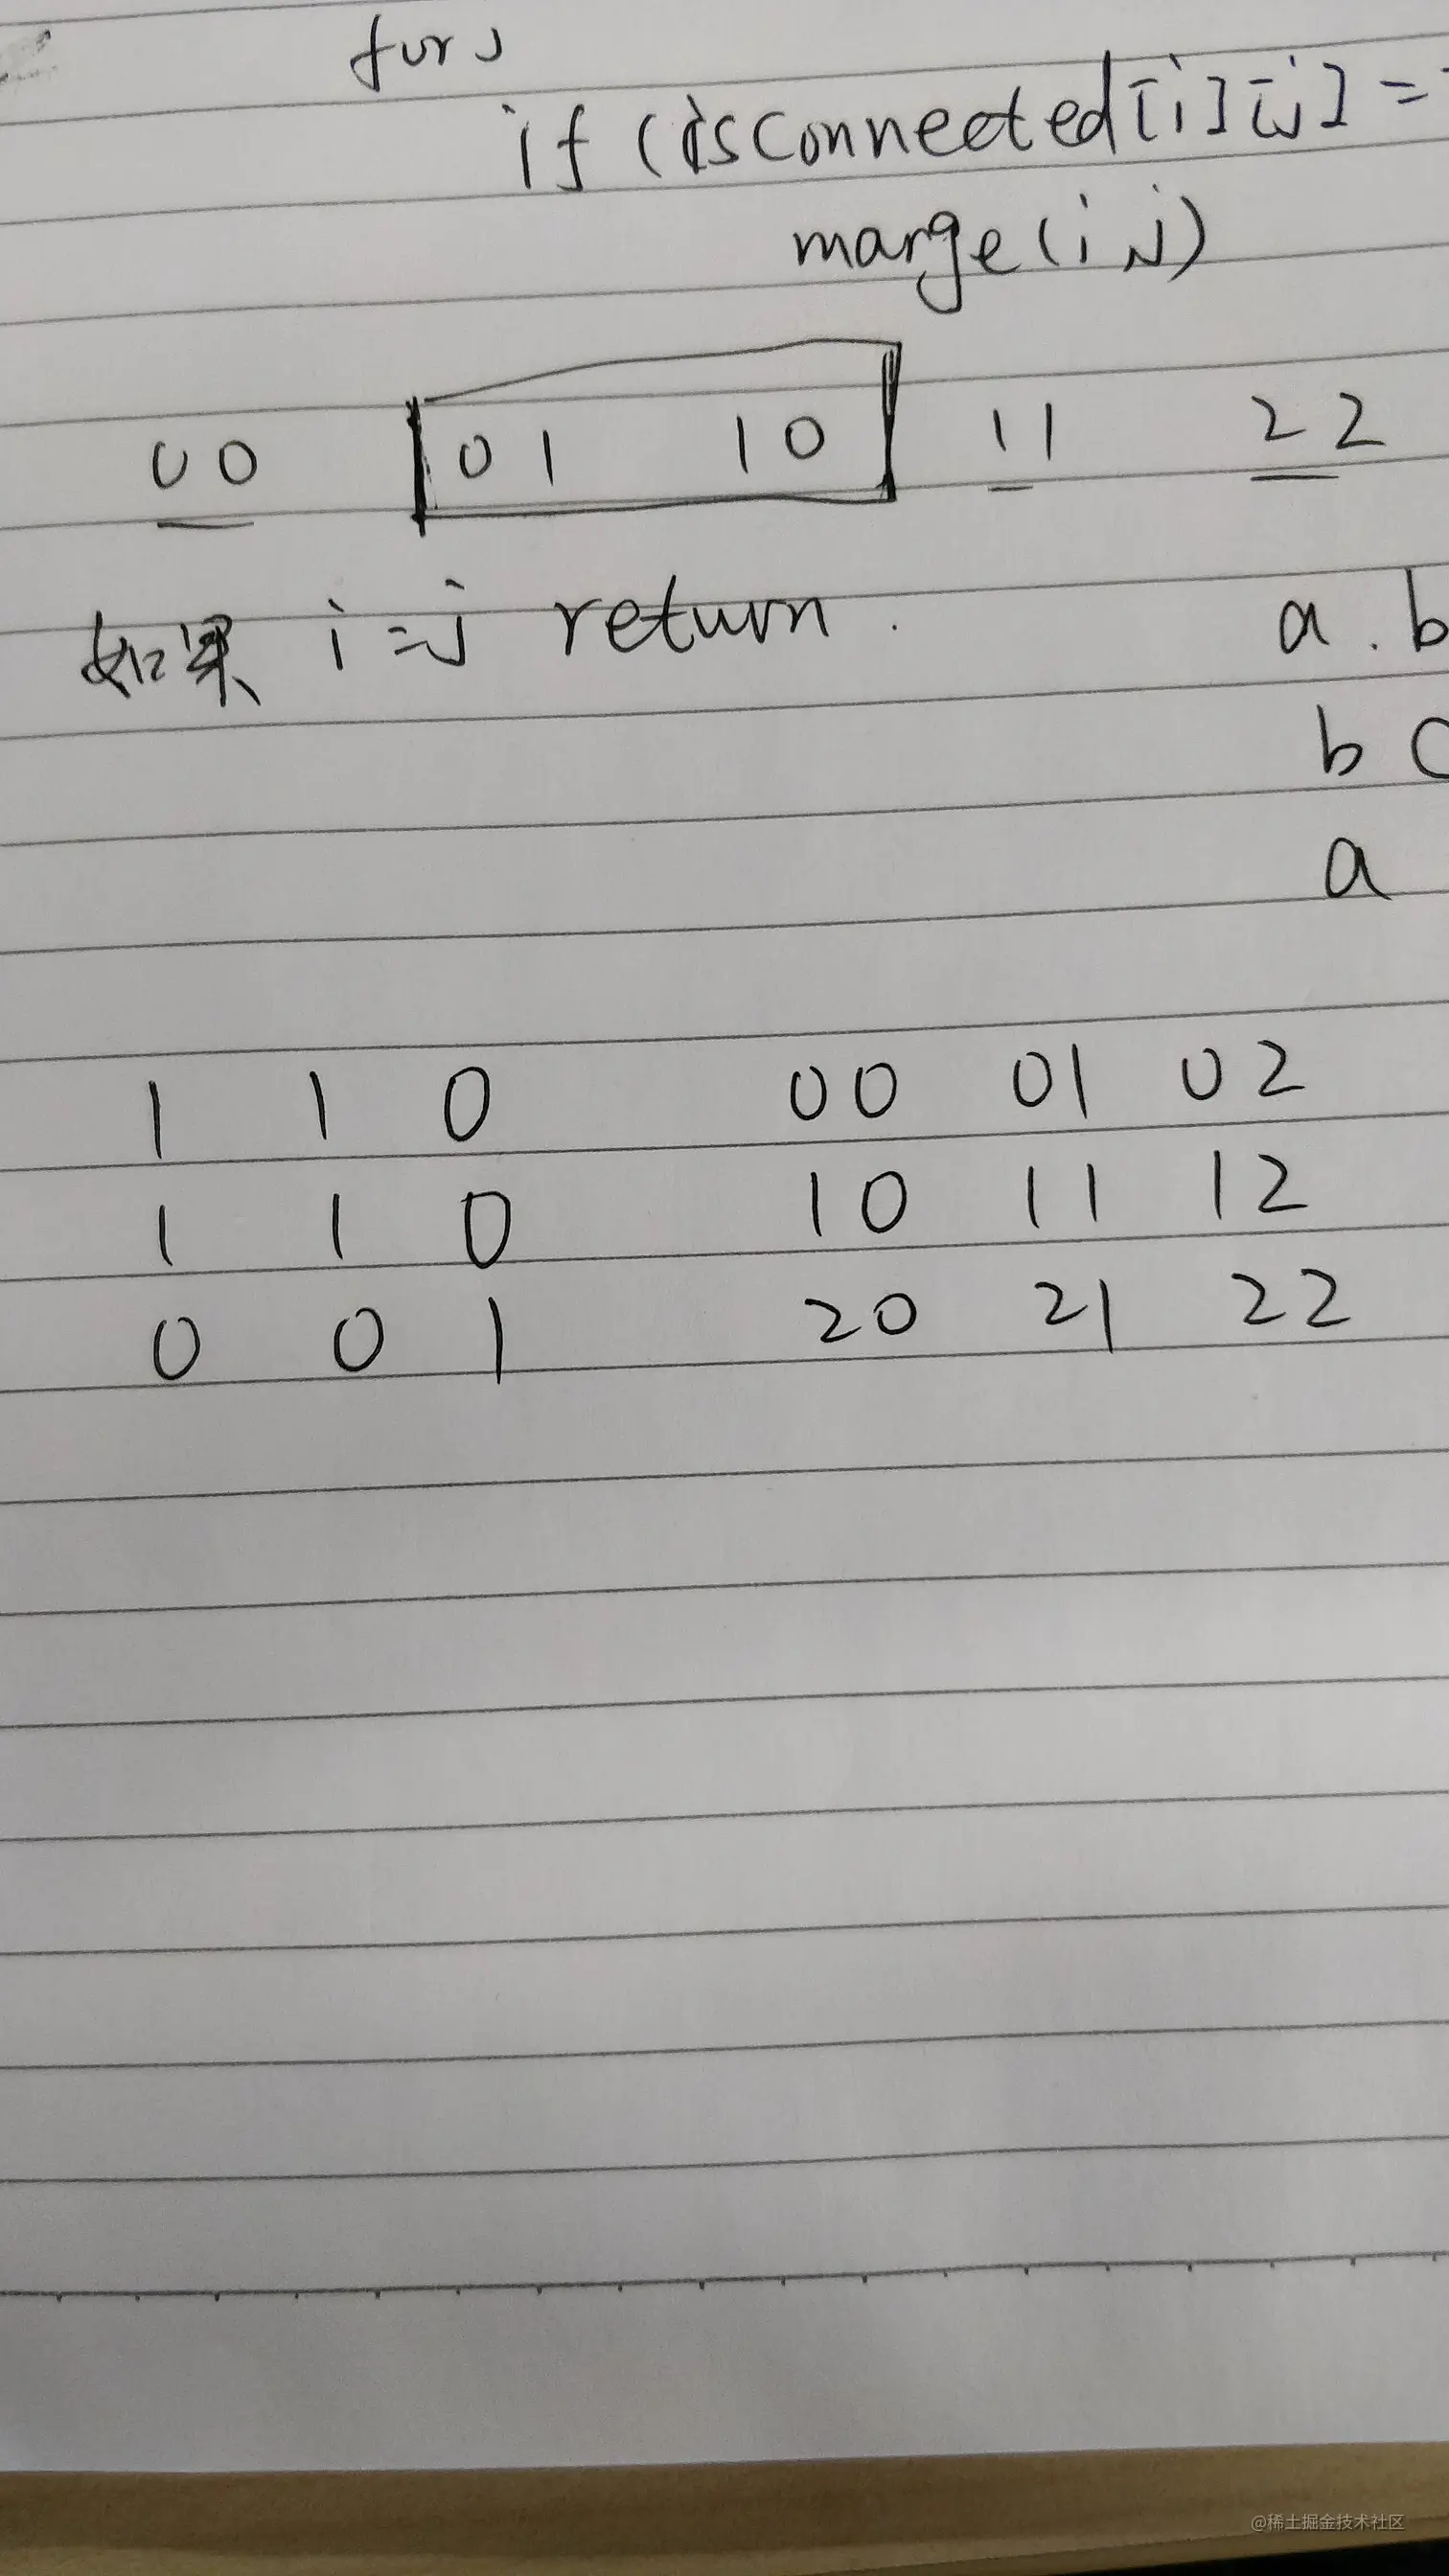 for j
if (isConnected[i][j] =
marge(i,j)
00 01 10 11 22
如果 i=j return.
a.b
b c
a
1 1 0 00 01 02
1 1 0 10 11 12
0 0 1 20 21 22
@稀土掘金技术社区